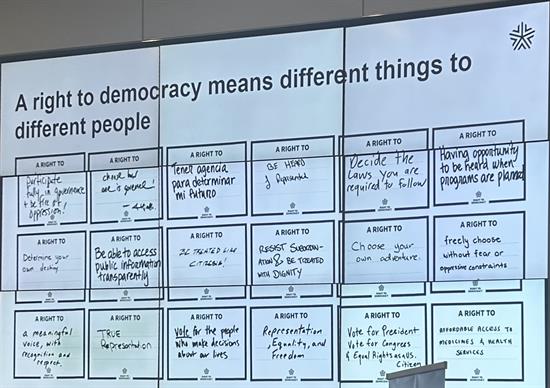 A right to democracy means different things to
different people
A RIGHT TO
participate
fully in governance
+ be free of
oppression!
A RIGHT TO
choose how
one is governed!
A RIGHT TO
Tener agencia
para determinar
mi futuro
A RIGHT TO
BE HEARD
& Represented
A RIGHT TO
Decide the
Laws you are
required to follow
A RIGHT TO
Having opportunity
to be heard when
programs are planned
A RIGHT TO
Determine your
own destiny
A RIGHT TO
Be able to access
public information
transparently
A RIGHT TO
BE TREATED LIKE
CITIZENS!
A RIGHT TO
RESIST SUBORDIN-
ATION & BE TREATED
WITH DIGNITY
A RIGHT TO
Choose your
own adventure.
A RIGHT TO
freely choose
without fear or
oppressive constraints
A RIGHT TO
a meaningful
voice, with
recognition and
respect.
A RIGHT TO
TRUE
Representation
A RIGHT TO
vote for the people
who make decisions
about our lives
A RIGHT TO
Representation,
Equality, and
Freedom
A RIGHT TO
Vote for President
Vote for Congress
& Equal Rights as U.S.
Citizen
A RIGHT TO
AFFORDABLE ACCESS TO
MEDICINES & HEALTH
SERVICES